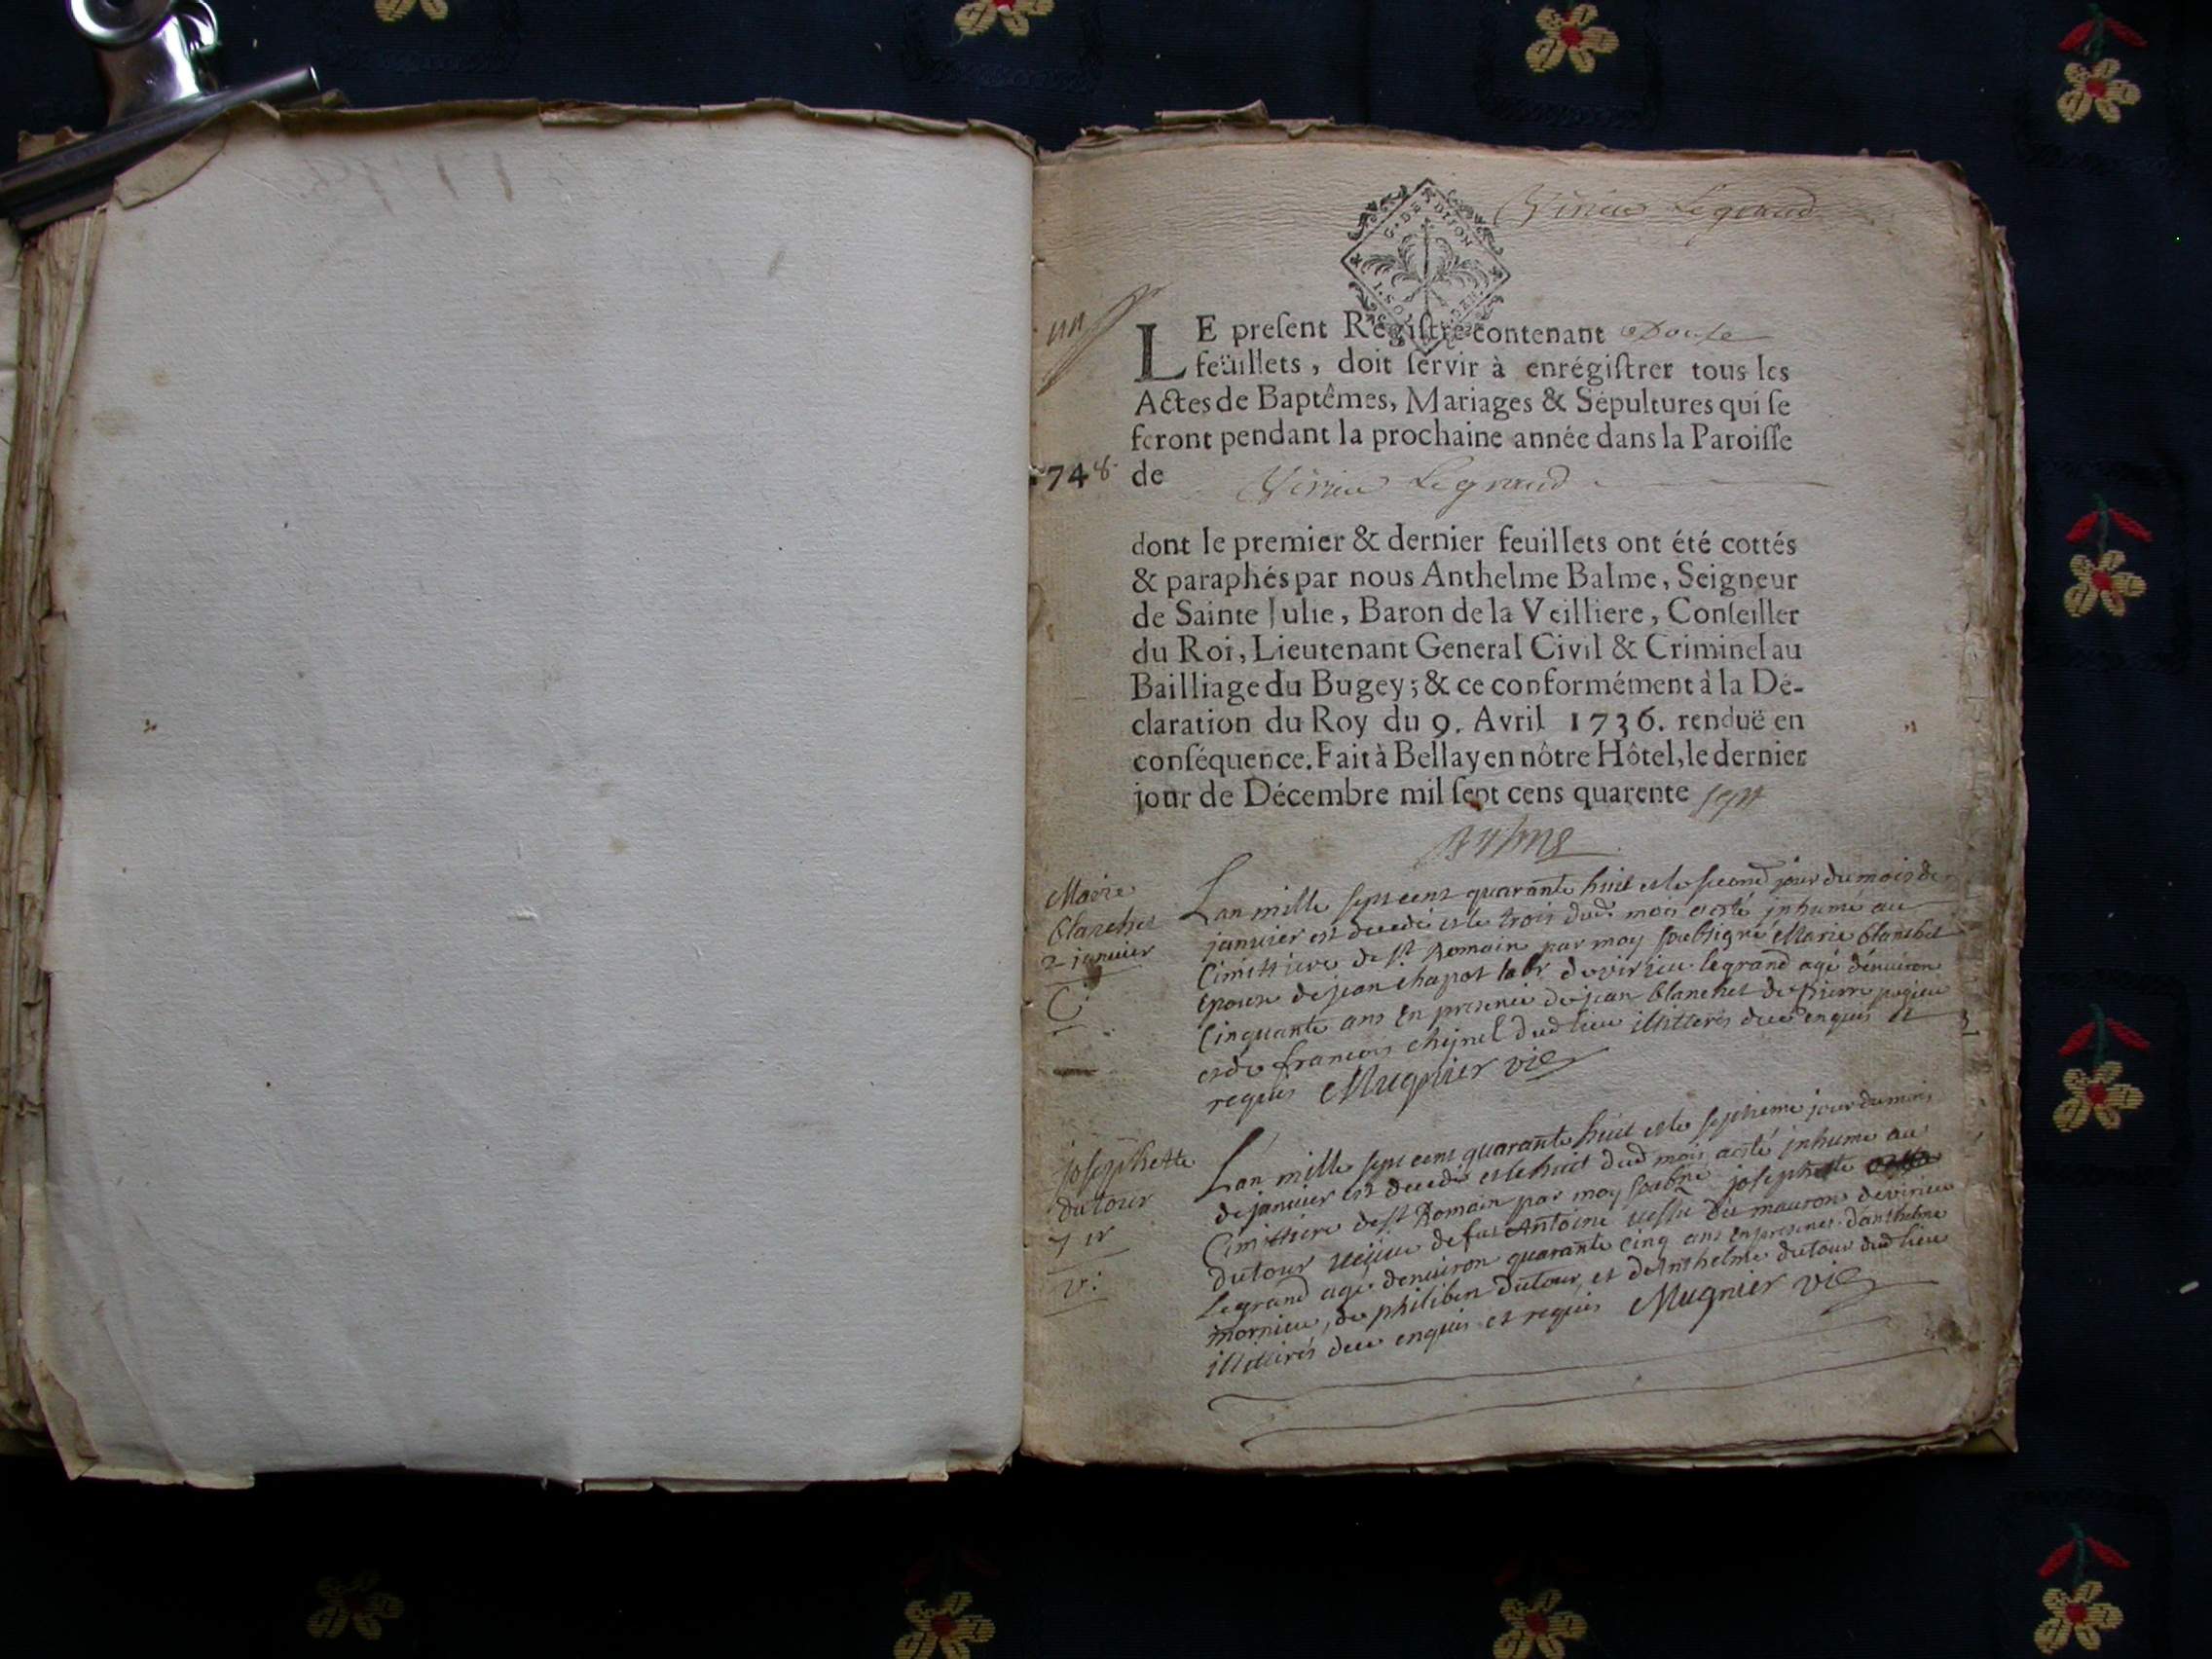 Virieu Legrand
G. DE DIJON
un
LE preſent Regiſtre contenant Douſe
feüillets, doit ſervir à enrégiſtrer tous les
Actes de Baptêmes, Mariages & Sépultures qui ſe
feront pendant la prochaine année dans la Paroiſſe
1748 de Virieu Legrand
dont le premier & dernier feuillets ont été cottés
& paraphés par nous Anthelme Balme, Seigneur
de Sainte Julie, Baron de la Veilliere, Conſeiller
du Roi, Lieutenant General Civil & Criminel au
Bailliage du Bugey; & ce conformément à la Dé-
claration du Roy du 9. Avril 1736. renduë en
conſéquence. Fait à Bellay en nôtre Hôtel, le dernier
jour de Décembre mil ſept cens quarente sept
Marie
blanchet
2 janvier
C.
Lan mille sept cent quarante huit et le second jour du mois de
janvier est decedé et le trois dud. mois a esté inhumé au
Cimettiere de st Romain par moy soubsigné Marie blanchet
epouse de jean chapot labr de virieu legrand agé d'environ
Cinquante ans en presence de jean blanchet de pierre pugieu
et de francois cheynel dud lieu illitterés de ce enquis et
requis Mugnier vic
josephette
dutour
7 jr
v.
Lan mille sept cent quarante huit et le septieme jour du mois
de janvier est decedé et le huit dud mois a esté inhumé au
Cimettiere de st Romain par moy soubné josephette
dutour veuve de feu Antoine de virieu
Legrand agé denviron quarante cinq ans en presence d'anthelme
mornieu, de philibert dutour, et de Anthelme dutour dud lieu
illitterés de ce enquis et requis Mugnier vic